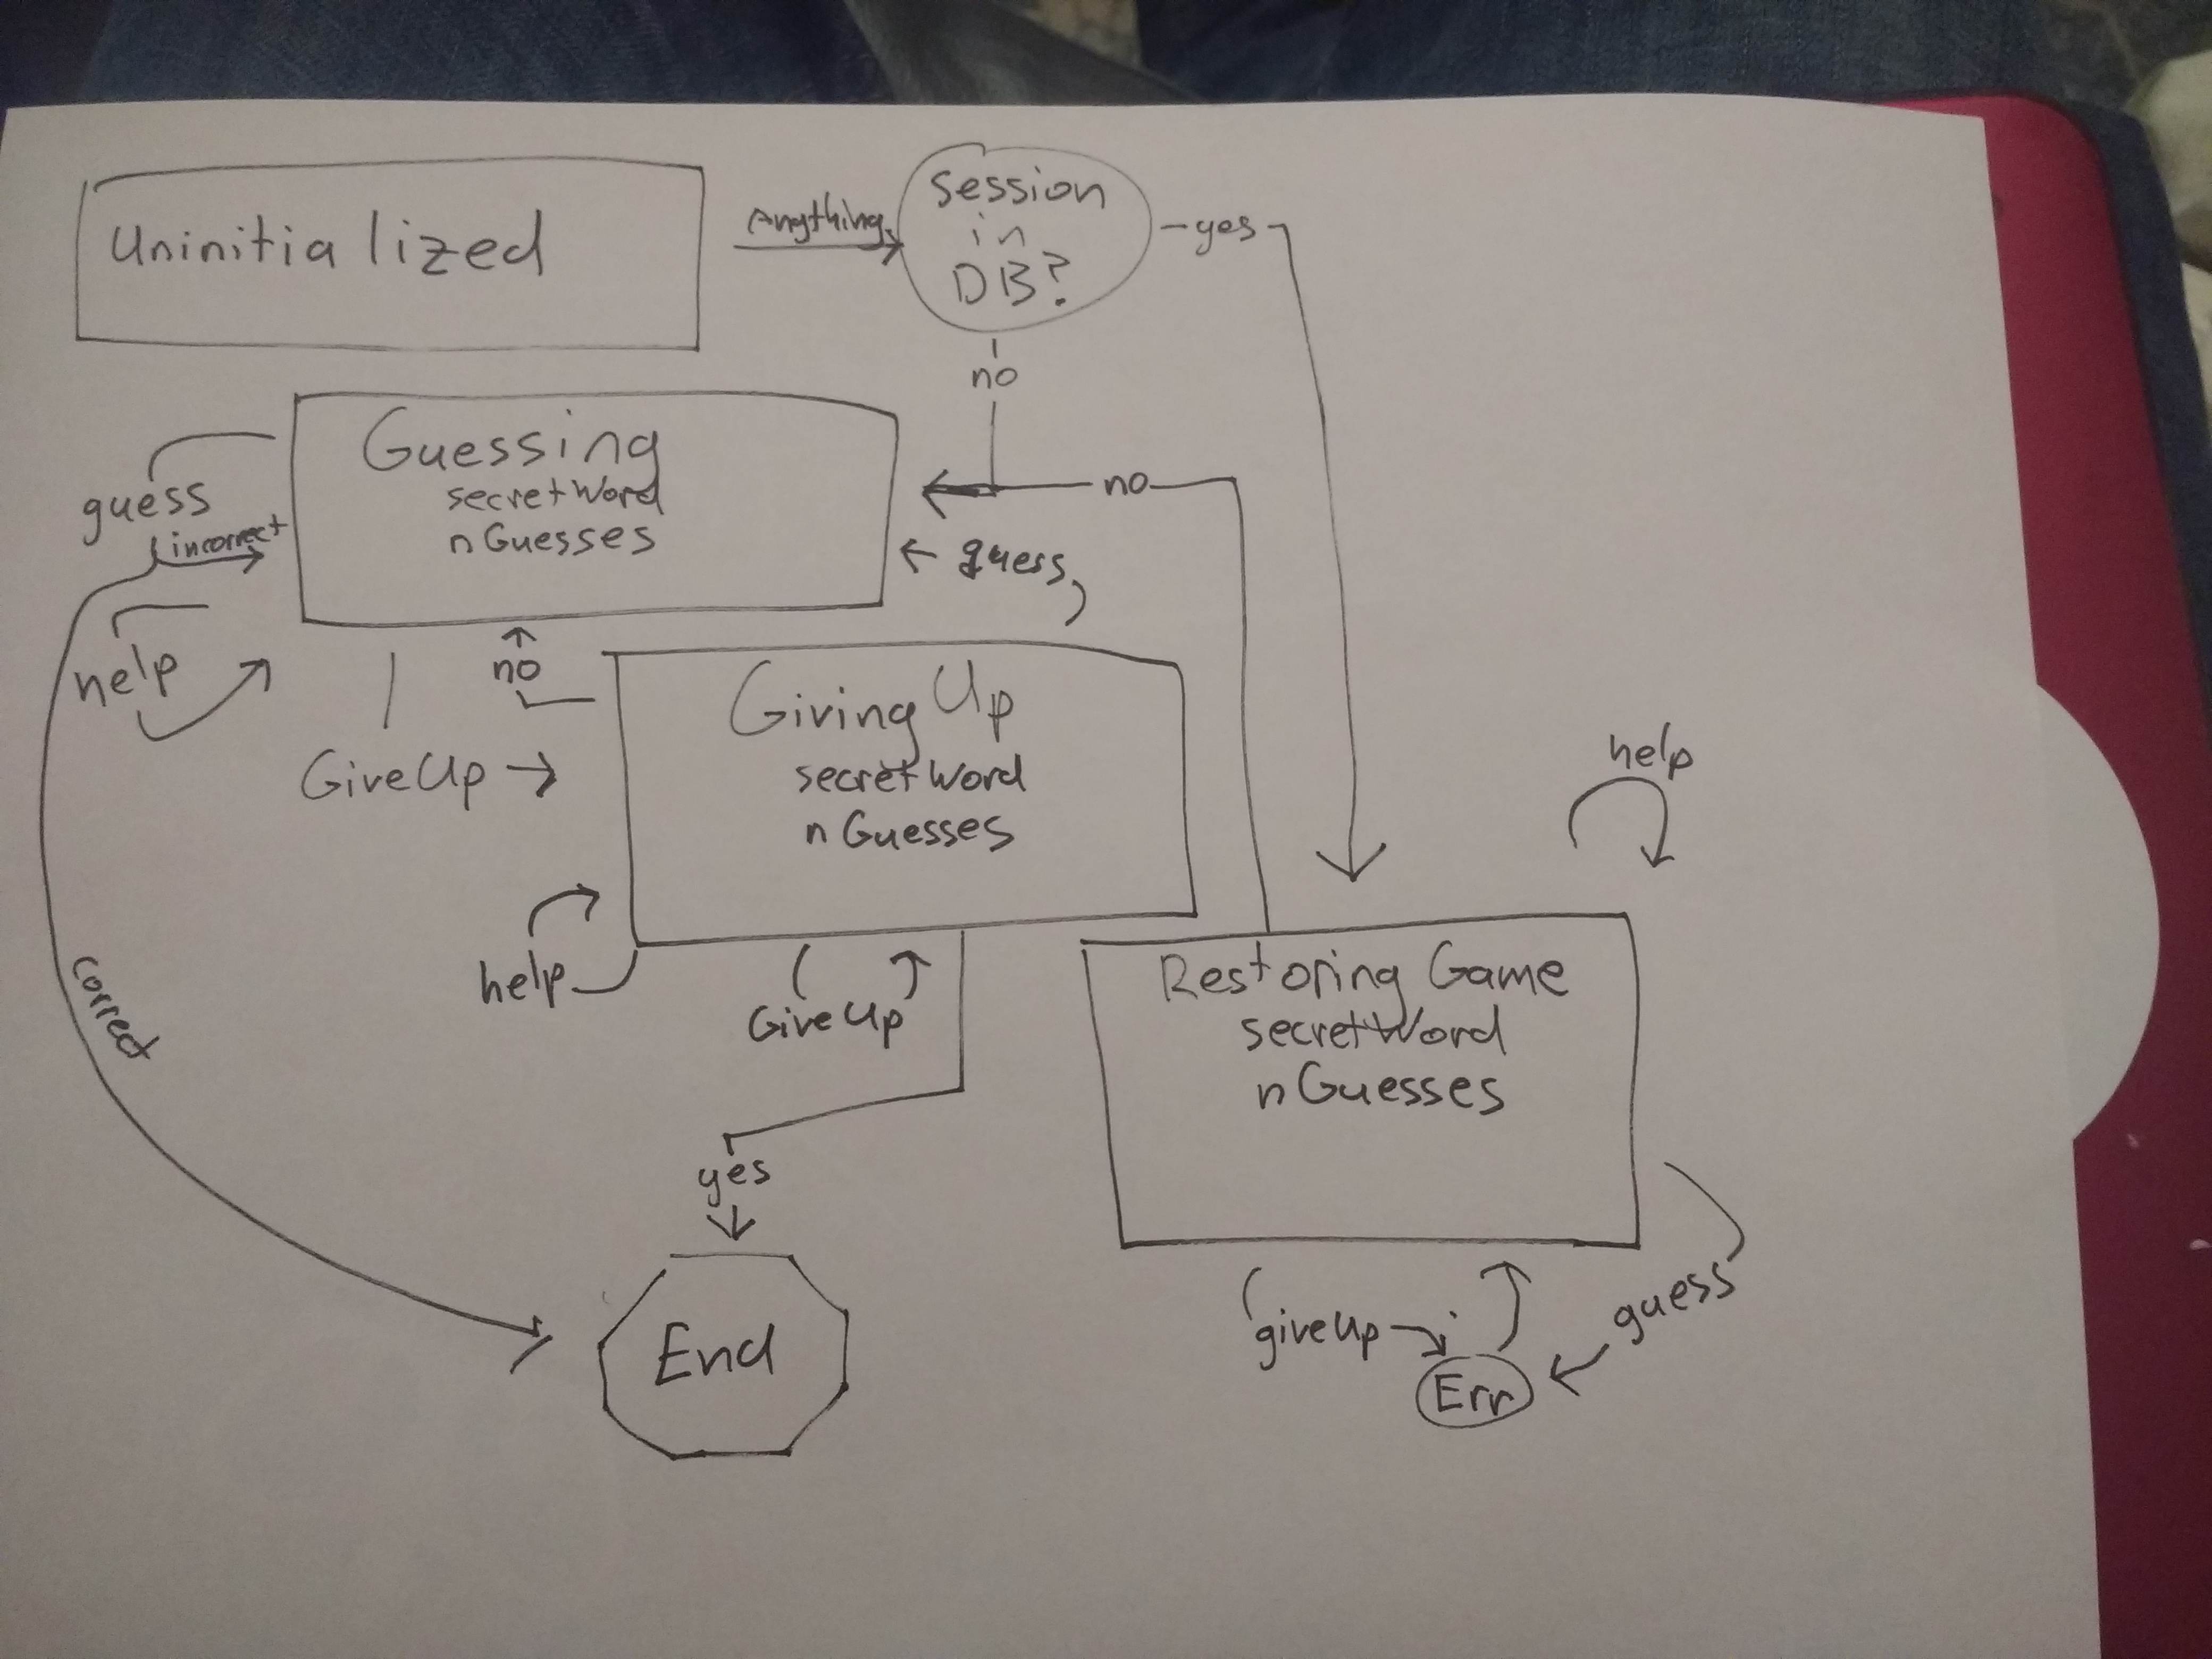 Uninitialized
Anything
session
in
DB?
yes
no
Guessing
secretWord
nGuesses
guess
incorrect
no
guess
help
no
GiveUp
Giving Up
secretWord
nGuesses
help
help
GiveUp
correct
Restoring Game
secretWord
nGuesses
yes
End
giveUp
guess
Err